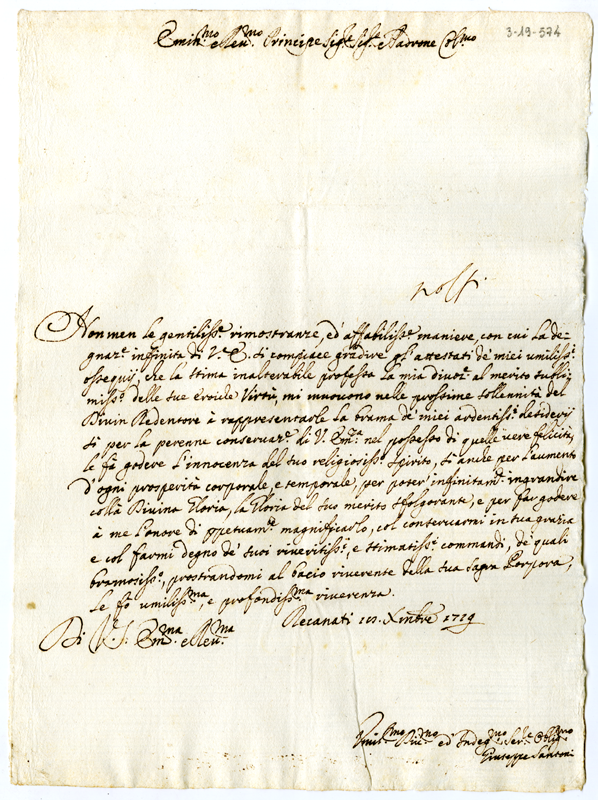 3-19-574
Emin.mo e Rev.mo Principe Sig.r Sig.r e Padrone Col.mo
Non men le gentiliss.e rimostranze, ed' affabiliss.e maniere, con cui la de-
gnaz.e infinita di V. E. si compiace gradire gl'attestati de miei umiliss.i
ossequij, che la stima inalterabile professa la mia divoz.e al merito subli-
miss.o delle sue Eroide Virtù, mi muovono nelle prossime sollennità del
Divin Redentore à rappresentarle la brama de' miei ardentiss.i desiderij
sì per la perenne conservaz.e di V. Em.za nel possesso di quelle vere felicità,
le fà godere l'innocenza del suo religiosiss.o Spirito, sì anche per l'aumento
d'ogni prosperità corporale, e temporale, per poter' infinitam.e ingrandire
colla Divina Gloria, la Gloria del suo merito sfolgorante, e per far godere
à me l'onore di ppetuam.e magnificarlo, col conservarmi in sua grazia
e col farmi degno de' suoi riveritiss.i, e stimatiss.i commandi, de' quali
bramosiss.o, prostrandomi al bacio riverente della sua Sagra Porpora,
le fò umiliss.ma, e profondiss.ma riverenza.
Di V. Em.na e Rev.ma
Recanati Xmbre 1719
Umil.mo Div.mo ed' Indeg.no Ser.e Oblig.mo
Giuseppe Santoni